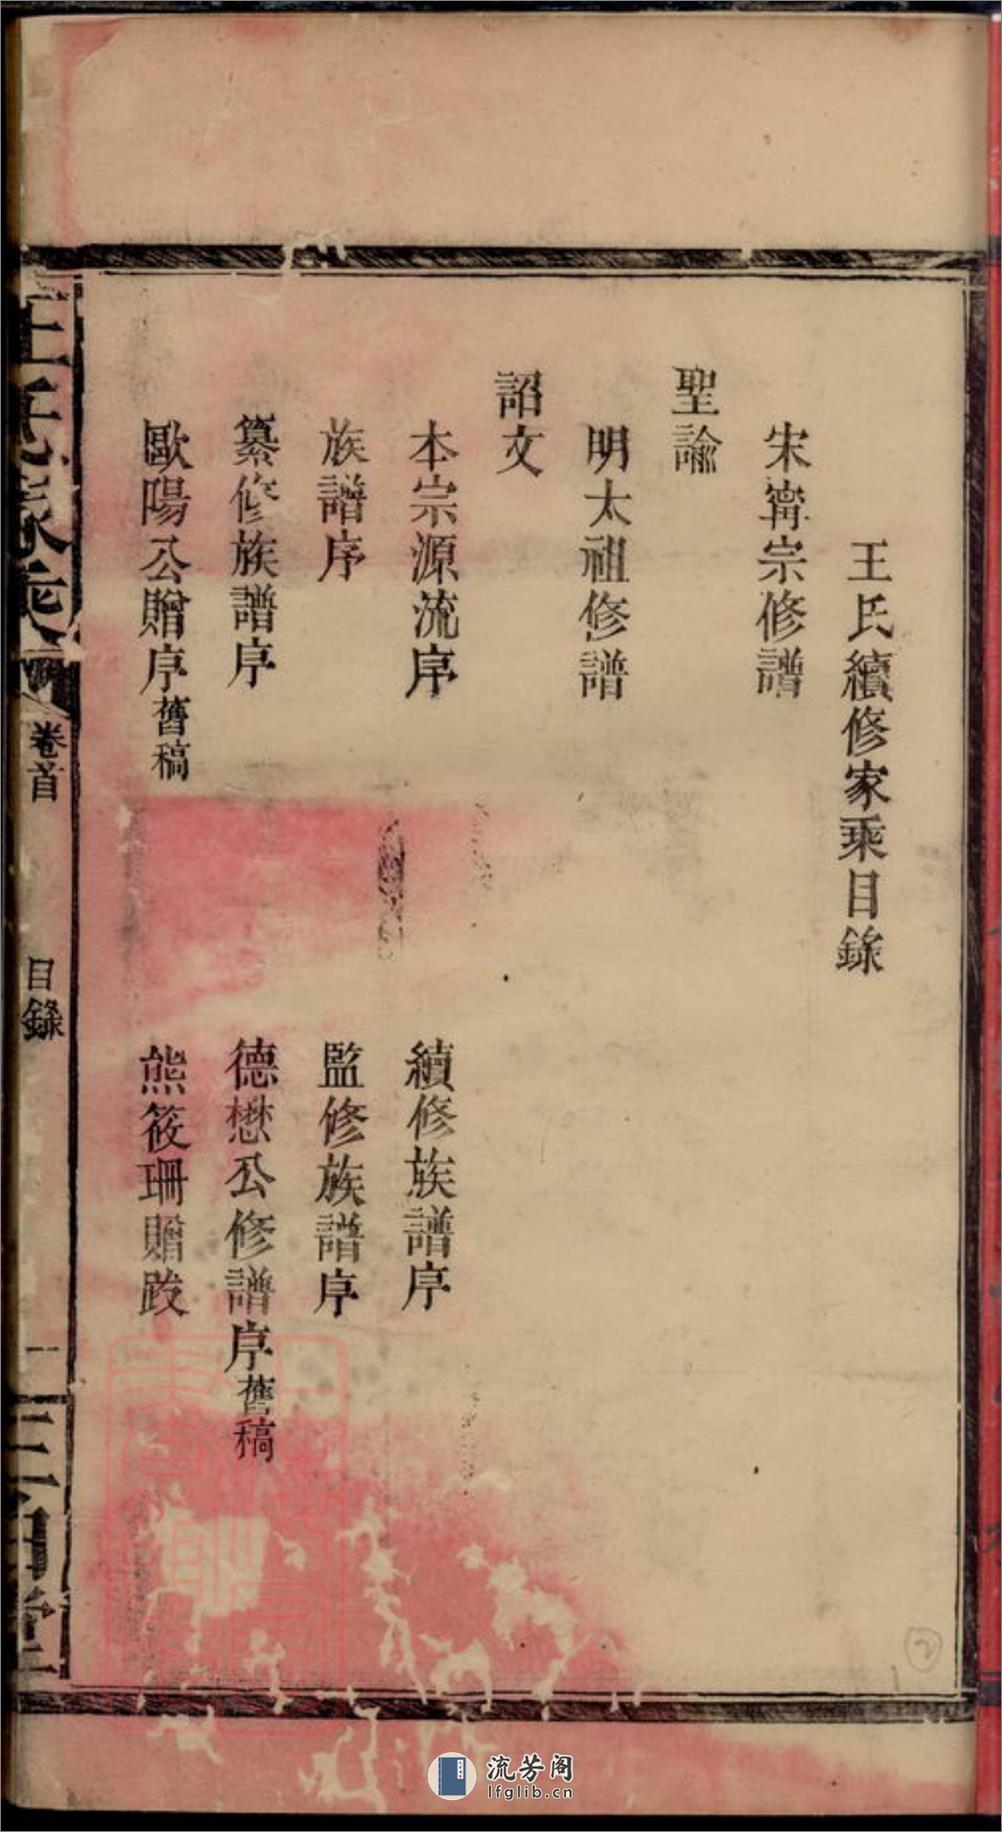 王氏續修家乘目錄
宋寗宗修譜
聖諭
明太祖修譜
詔文
本宗源流序
續修族譜序
族譜序
監修族譜序
纂修族譜序
德懋公修譜序舊稿
歐陽公贈序舊稿
熊筱珊贈跋
王氏家乘
卷首
目錄
一
堂
流芳阁
lfglib.cn